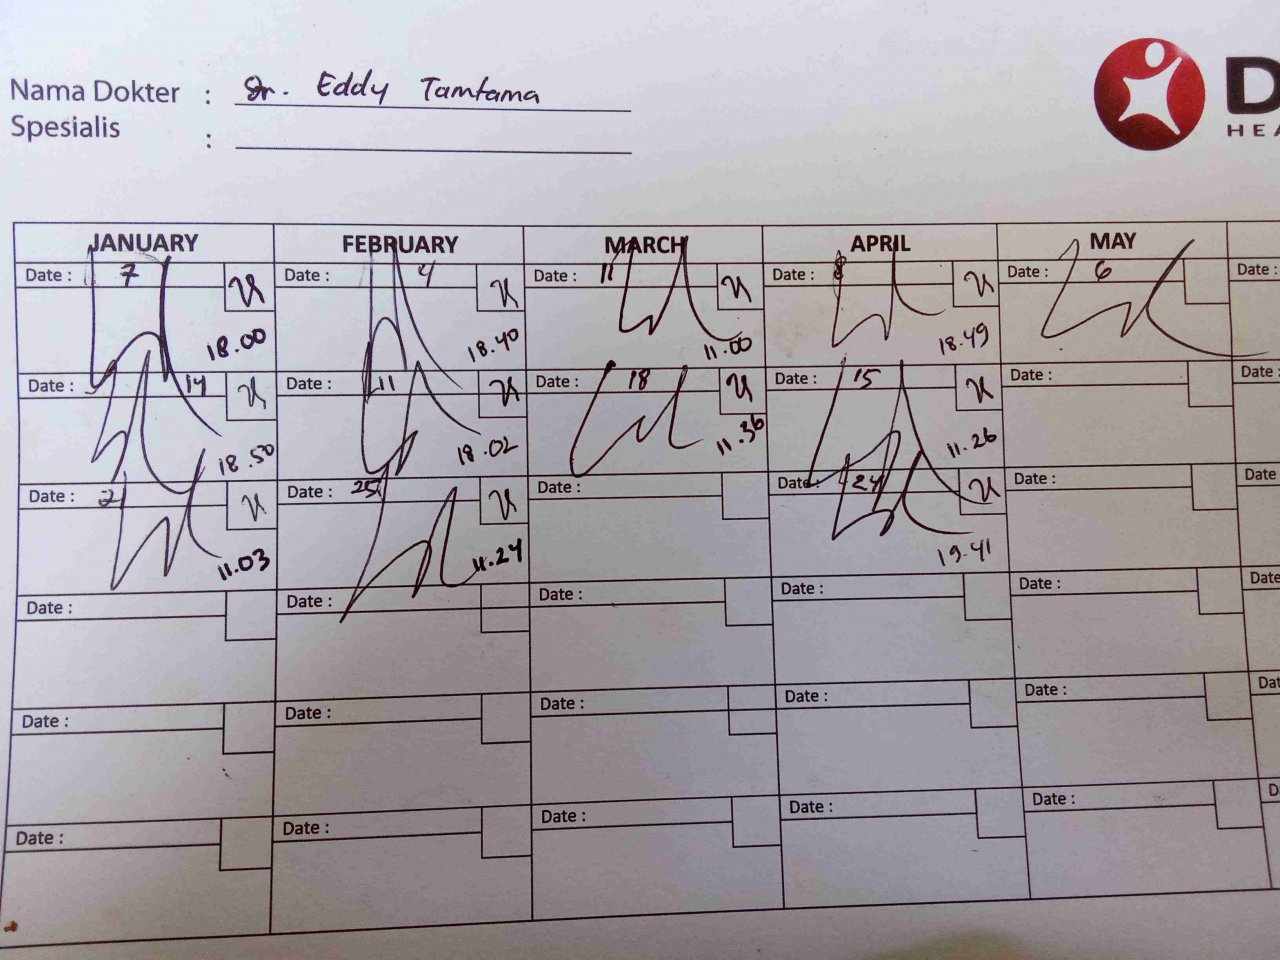 Nama Dokter : Dr. Eddy Tamtama
Spesialis :
D
HEA
JANUARY FEBRUARY MARCH APRIL MAY
Date : 7 Date : 4 Date : 11 Date : 8 Date : 6 Date :
18.00 18.40 11.00 18.49
Date : 14 Date : 11 Date : 18 Date : 15 Date : Date :
18.50 18.02 11.36 11.26
Date : 21 Date : 25 Date : Date : 24 Date : Date
11.03 11.24 19.41
Date : Date : Date : Date : Date : Date
Date : Date : Date : Date : Date : Dat
Date : Date : Date : Date : Date : D